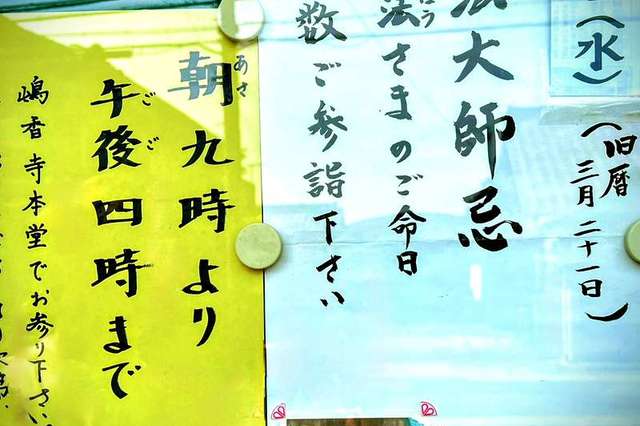 (水)
(旧暦
三月二十一日)
大師忌
法さまのご命日
数ご参詣下さい
朝九時より
あさ
午後四時まで
ごご
嶋香寺本堂でお参り下さい